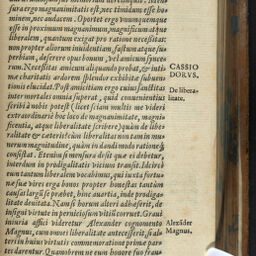 sura ergo magnanimitatis est, nec timidum esse ho
minem, nec audacem. Oportet ergo vnumquemque
esse in proximum magnanimum, magnificum atque
liberalem, quantum exigat pro ratione necessitas:
non propter aliorum inuidentiam, fastum atque su-
perbiam, aseuero opus bonum, vel amicum syncę-
rum. Necessitas amicum aliquando probat, & inti-
mæ charitatis ardorem splendor exhibitæ subuen-
tionis elucidat. Post amicitiam ergo cuius sanctitas
inter mortales omnia superat, quid conuenientius
scribi à nobis potest (licet sciam multis me videri
extraordinarie hoc loco de magnanimitate, magni-
ficentia, atque liberalitate scribere) quàm de libe-
ralitate & cæteris? cum liberalitas non tam in mu-
nerum magnitudine, quàm in dandi modo ratione
consistat. Etenim si mensura desit quæ ei debetur,
interdum in prodigalitatis vicium transit. Id circò
eum tantum liberalem vocabimus, qui iuxta fortu-
næ suæ vires erga bonos propter honestas tantùm
causas largus probatur, hinc auaritia, inde prodiga-
litate deuitata. Nam si horum alteri adhæserit, de
insigni virtute in perniciosum vitium corruet. Graui
iniuria affici videretur Alexander cognomento
Magnus, cum omnes liberalitate antecesserit, si al-
teri in huius virtutis commemoratione primæ par-
tes darentur. Quamobrem ne eum honore suo frau-
CASSIO
DORVS.
De libera-
litate.
Alexāder
Magnus.